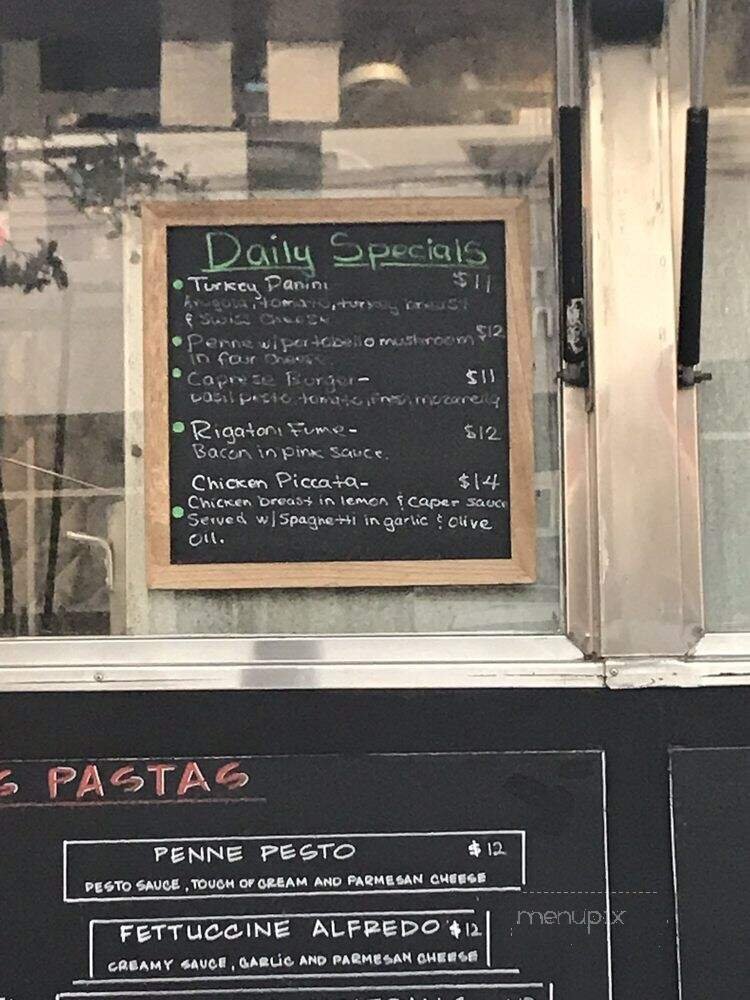 Daily Specials
Turkey Panini $11
Arugula, tomato, turkey breast
& Swiss Cheese
Penne w/portobello mushroom $12
in four cheese
Caprese Burger- $11
basil pesto, tomato, fresh mozzarella
Rigatoni Fume- $12
Bacon in pink sauce.
Chicken Piccata- $14
Chicken breast in lemon & caper sauce
Served w/ Spaghetti in garlic & olive
oil.
S PASTAS
PENNE PESTO $12
PESTO SAUCE, TOUCH OF CREAM AND PARMESAN CHEESE
FETTUCCINE ALFREDO $12
CREAMY SAUCE, GARLIC AND PARMESAN CHEESE
menupix